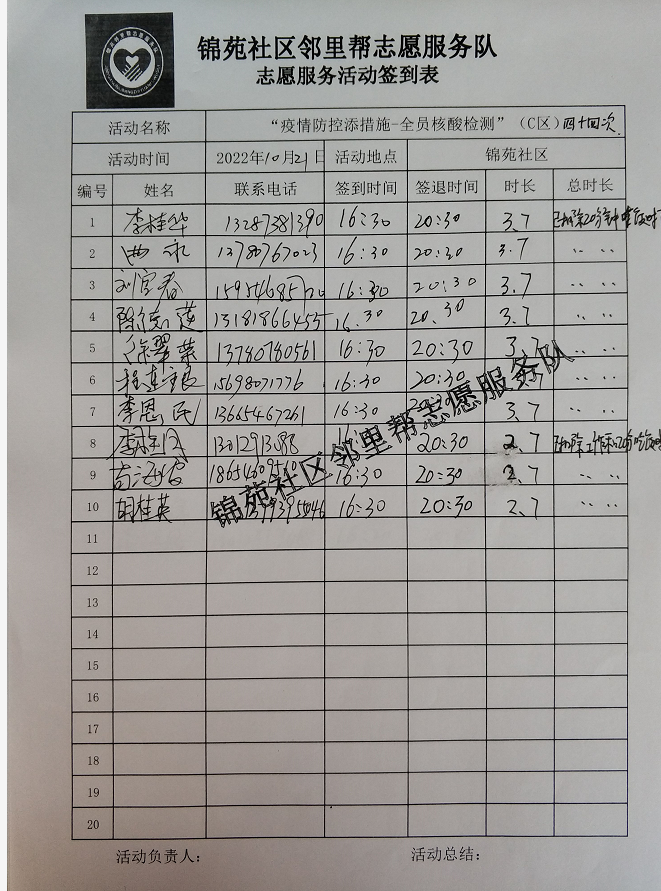 锦苑社区邻里帮志愿服务队
志愿服务活动签到表
活动名称 “疫情防控添措施-全员核酸检测”（C区）四十四次
活动时间 2022年10月21日 活动地点 锦苑社区
编号 姓名 联系电话 签到时间 签退时间 时长 总时长
1 李桂华 13287381390 16:30 20:30 3.7
2 曲永 13780767023 16:30 20:30 3.7 〃 〃
3 16:30 20:30 3.7 〃 〃
4 13181866455 16.30 20.30 3.7 〃 〃
5 徐翠荣 13780780561 16:30 20:30 3.7 〃 〃
6 15698071776 16:30 20:30 〃 〃
7 李恩民 13665467261 16:30 20:30 3.7 〃 〃
8 20:30 2.7
9 16:30 20:30 2.7 〃 〃
10 胡桂英 16:30 20:30 2.7 〃 〃
锦苑社区邻里帮志愿服务队
11
12
13
14
15
16
17
18
19
20
活动负责人： 活动总结：